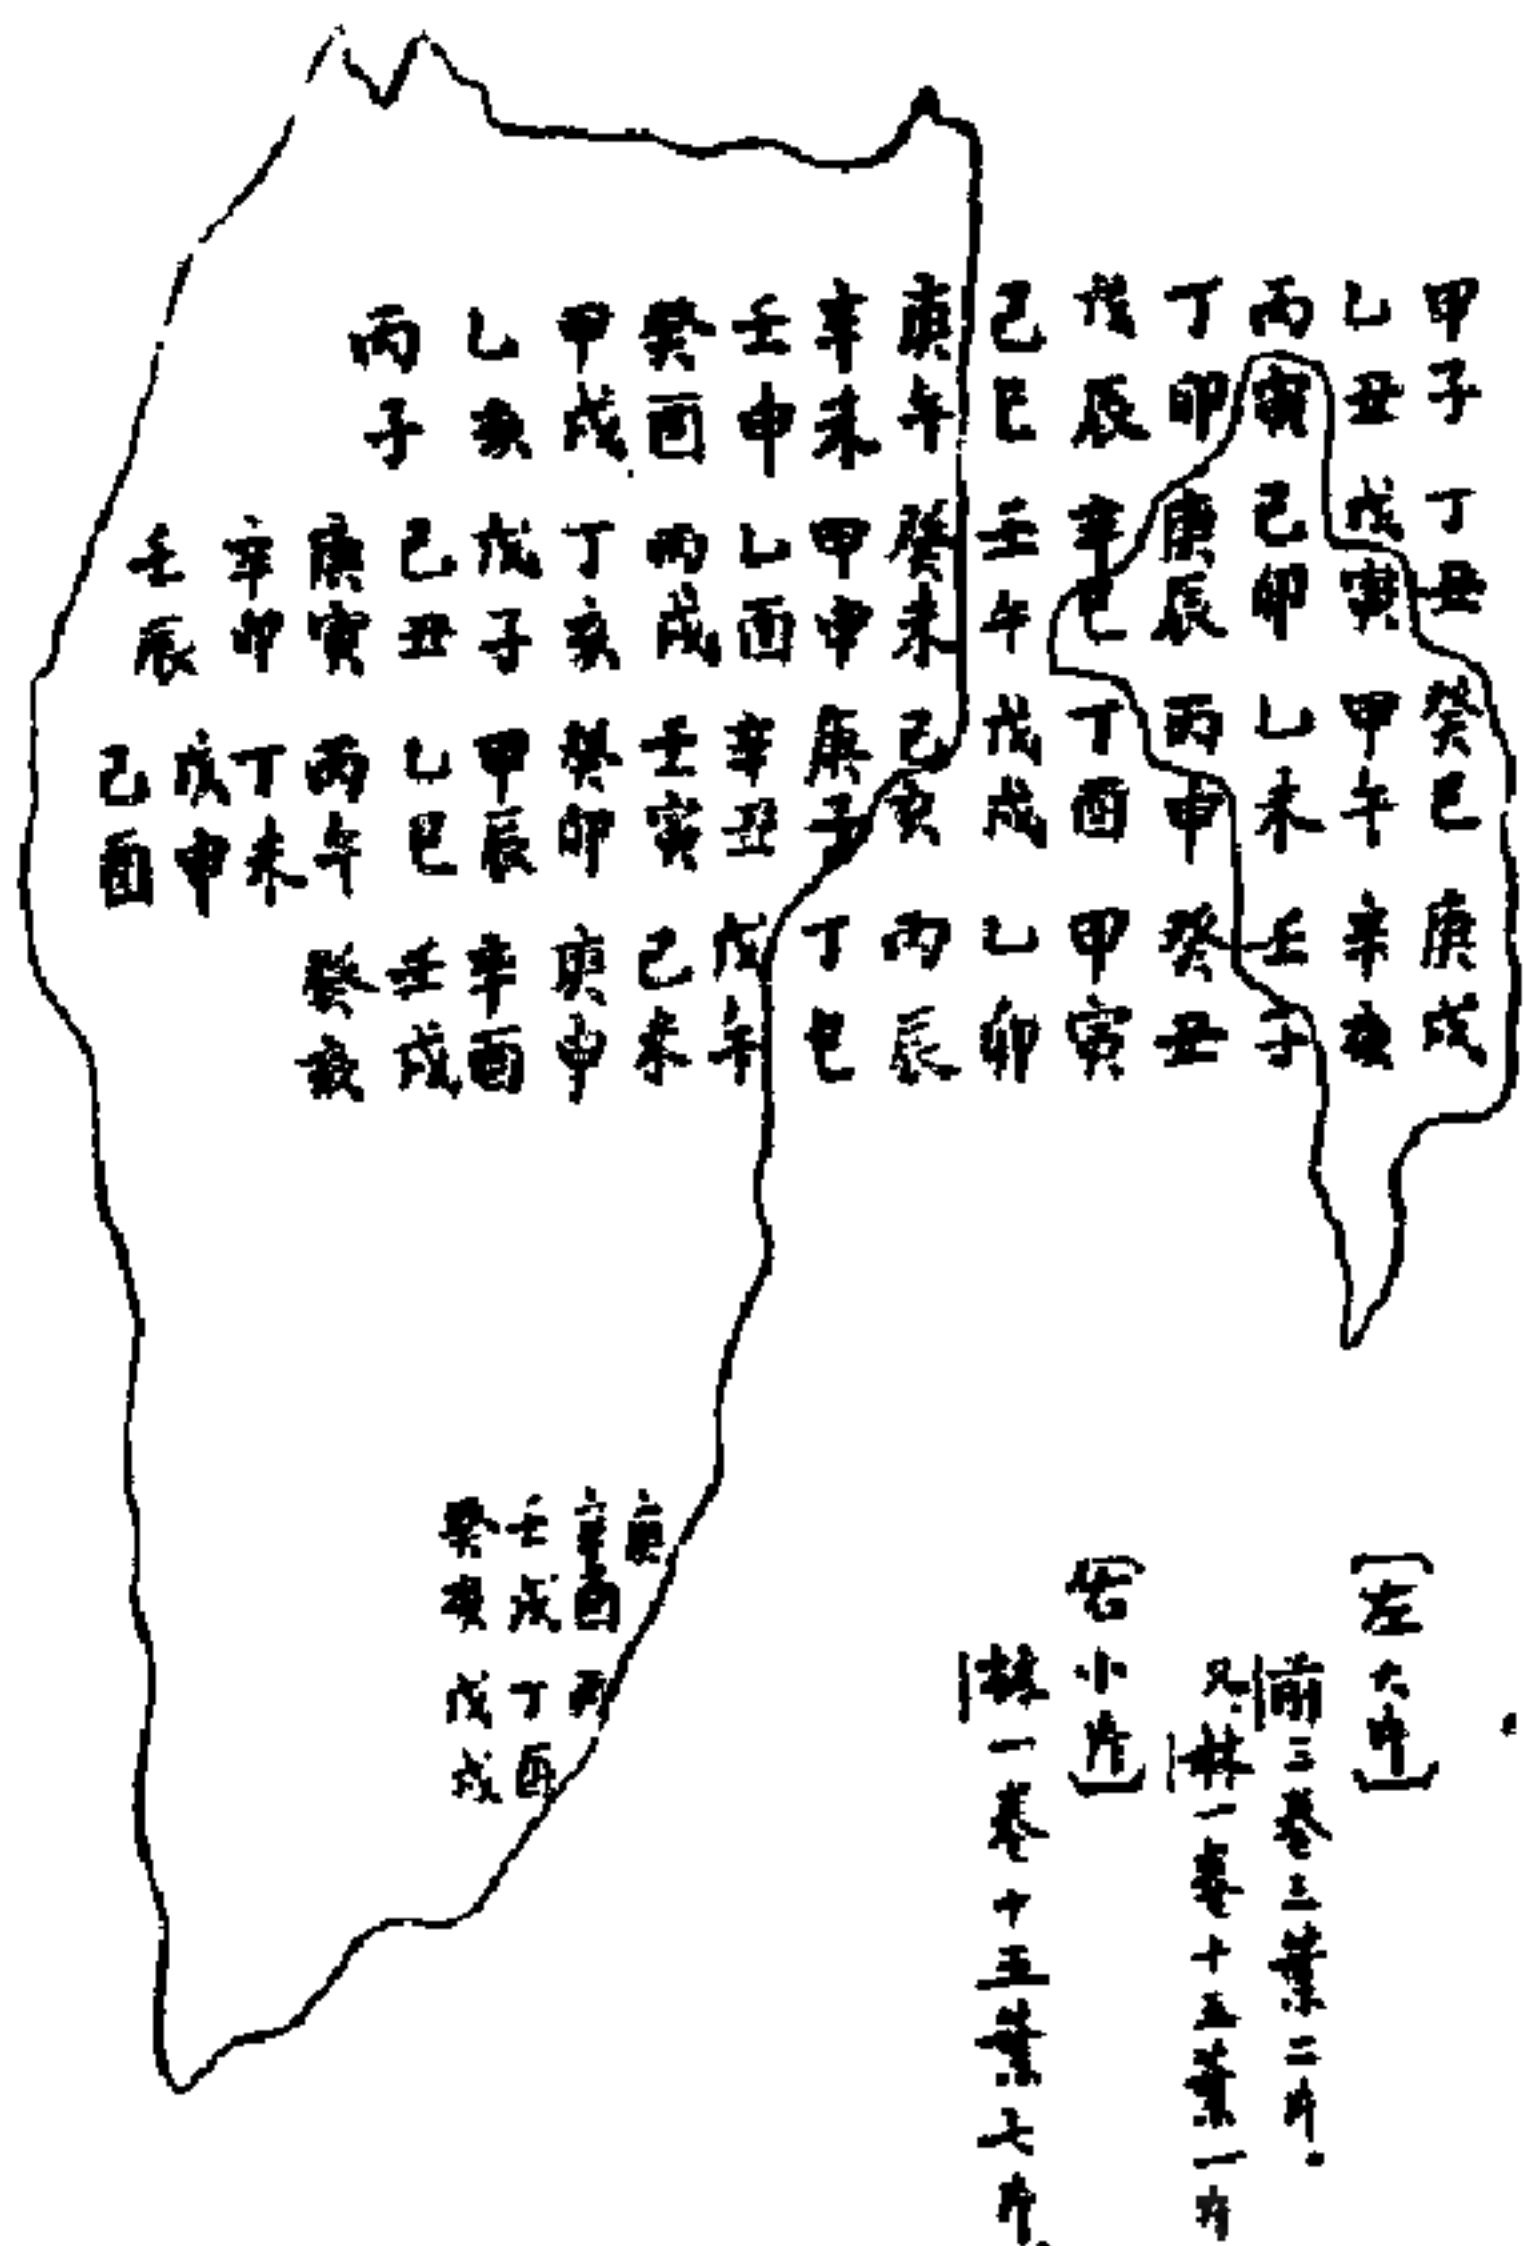 甲子 乙丑 丙寅 丁卯 戊辰 己巳 庚午 辛未 壬申 癸酉 甲戌 乙亥 丙子
丁丑 戊寅 己卯 庚辰 辛巳 壬午 癸未 甲申 乙酉 丙戌 丁亥 戊子 己丑 庚寅 辛卯 壬辰
癸巳 甲午 乙未 丙申 丁酉 戊戌 己亥 庚子 辛丑 壬寅 癸卯 甲辰 乙巳 丙午 丁未 戊申 己酉
庚戌 辛亥 壬子 癸丑 甲寅 乙卯 丙辰 丁巳 戊午 己未 庚申 辛酉 壬戌 癸亥
庚 辛酉 壬戌 癸亥
丙 丁酉 戊戌
[左大片]
前三卷三葉二片.
又.林一卷十五葉一片
[右小片]
林一卷十五葉七片.